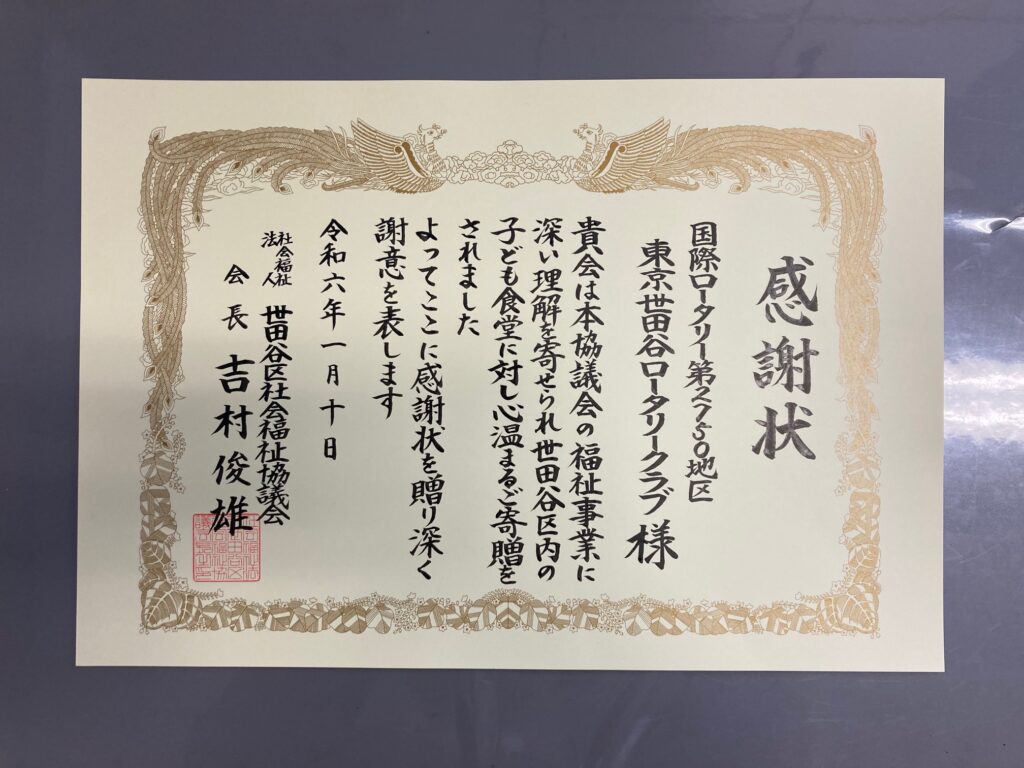 感謝状
国際ロータリー第2750地区
東京世田谷ロータリークラブ 様
貴会は本協議会の福祉事業に
深い理解を寄せられ世田谷区内の
子ども食堂に対し心温まるご寄贈を
されました
よってここに感謝状を贈り深く
謝意を表します
令和六年一月十日
社会福祉法人 世田谷区社会福祉協議会
会長 吉村俊雄